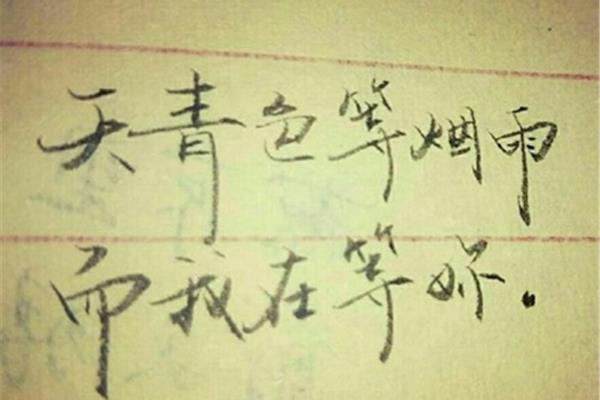 天青色等烟雨
而我在等妳.